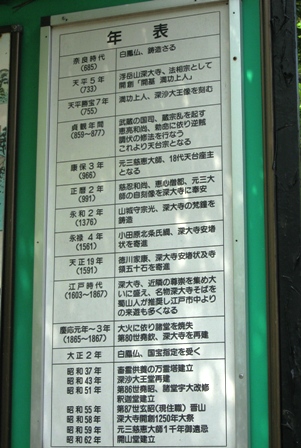 年表
奈良時代
(685)
白鳳仏、鋳造さる
天平5年
(733)
浮岳山深大寺、法相宗として
開創「開基 満功上人」
天平勝宝7年
(755)
満功上人、深沙大王像を刻む
貞観年間
(859~877)
武蔵の国司、蔵宗乱を起す
恵亮和尚、勅命に依り逆賊
調伏の修法を行なう
これより天台宗となる
康保3年
(966)
元三慈恵大師、18代天台座主
となる
正暦2年
(991)
慈忍和尚、恵心僧都、元三大
師の自刻像を深大寺に奉安
永和2年
(1376)
山城守宗光、深大寺の梵鐘を
鋳造
永禄4年
(1561)
小田原北条氏綱、深大寺安堵
状を寄進
天正19年
(1591)
徳川家康、深大寺安堵状及寺
領五十石を寄進
江戸時代
(1603~1867)
深大寺、近隣の尊崇を集め大
いに盛え、名物深大寺そばを
蜀山人が推奨し江戸市中より
の来遊も多くなる
慶応元年~3年
(1865~1867)
大火に依り諸堂を焼失
第80世堯欽、深大寺を再建
大正2年
白鳳仏、国宝指定を受く
昭和37年
畜霊供養の万霊塔建立
昭和43年
深沙大王堂再建
昭和51年
第86世堯昭、諸堂宇大改修
釈迦堂建立
昭和55年
第87世玄昭(現住職)晋山
昭和58年
深大寺開創1250年大祭
昭和59年
元三慈恵大師1千年御遠忌
昭和62年
開山堂建立